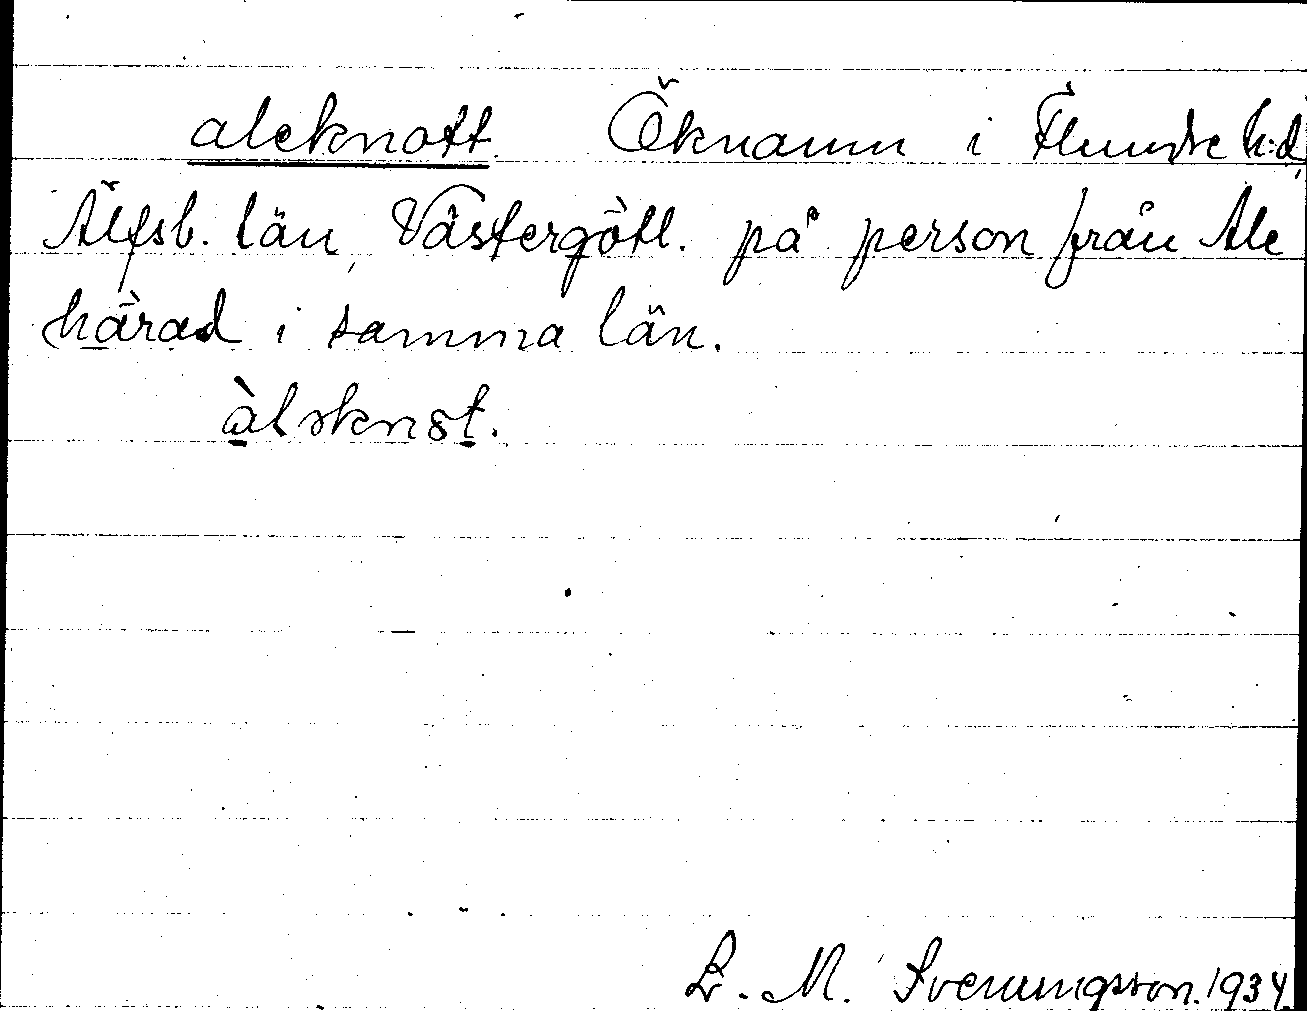 aleknott. Öknamn i Flundre h:d,
Älfsb. län, Västergötl. på person från Ale
härad i samma län.
àləknɔt.
L. M. Svenungsson. 1934.